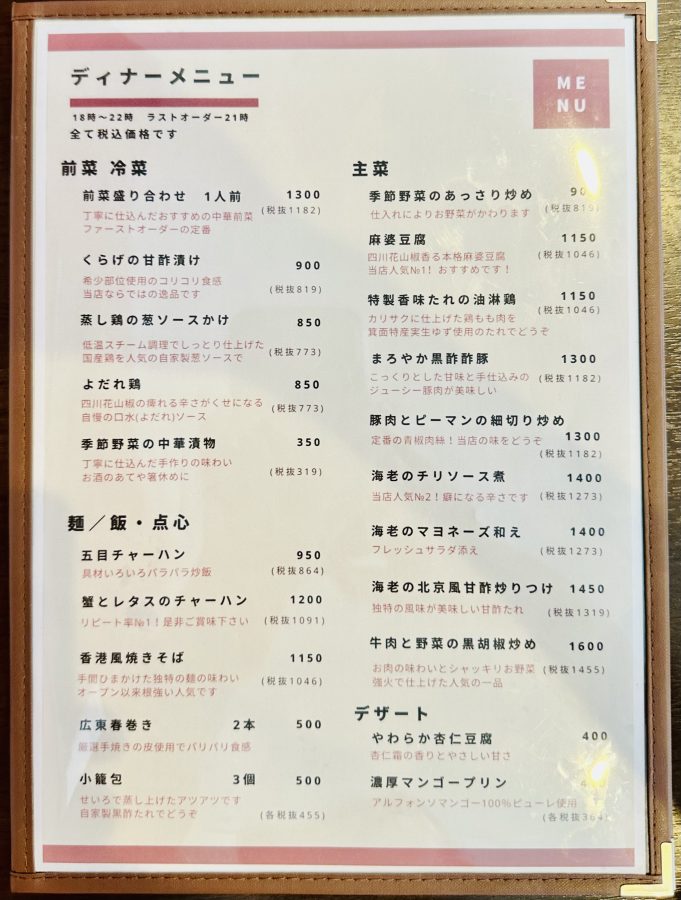 ディナーメニュー
ME
NU
18時〜22時　ラストオーダー21時
全て税込価格です
前菜 冷菜
前菜盛り合わせ　1人前　1300
丁寧に仕込んだおすすめの中華前菜　(税抜1182)
ファーストオーダーの定番
くらげの甘酢漬け　900
希少部位使用のコリコリ食感
当店ならではの逸品です　(税抜819)
蒸し鶏の葱ソースかけ　850
低温スチーム調理でしっとり仕上げた
国産鶏を人気の自家製葱ソースで　(税抜773)
よだれ鶏　850
四川花山椒の痺れる辛さがくせになる
自慢の口水(よだれ)ソース　(税抜773)
季節野菜の中華漬物　350
丁寧に仕込んだ手作りの味わい
お酒のあてや箸休めに　(税抜319)
麺／飯・点心
五目チャーハン　950
具材いろいろパラパラ炒飯　(税抜864)
蟹とレタスのチャーハン　1200
リピート率№1！是非ご賞味下さい　(税抜1091)
香港風焼きそば　1150
手間ひまかけた独特の麺の味わい　(税抜1046)
オープン以来根強い人気です
広東春巻き　2本　500
厳選手焼きの皮使用でパリパリ食感
小籠包　3個　500
せいろで蒸し上げたアツアツです
自家製黒酢たれでどうぞ　(各税抜455)
主菜
季節野菜のあっさり炒め
仕入れによりお野菜がかわります　(税抜819)
麻婆豆腐　1150
四川花山椒香る本格麻婆豆腐　(税抜1046)
当店人気№1！おすすめです！
特製香味たれの油淋鶏　1150
カリサクに仕上げた鶏もも肉を　(税抜1046)
箕面特産実生ゆず使用のたれでどうぞ
まろやか黒酢酢豚　1300
こっくりとした甘味と手仕込みの　(税抜1182)
ジューシー豚肉が美味しい
豚肉とピーマンの細切り炒め
定番の青椒肉絲！当店の味をどうぞ　1300
(税抜1182)
海老のチリソース煮　1400
当店人気№2！癖になる辛さです　(税抜1273)
海老のマヨネーズ和え　1400
フレッシュサラダ添え　(税抜1273)
海老の北京風甘酢炒りつけ　1450
独特の風味が美味しい甘酢たれ　(税抜1319)
牛肉と野菜の黒胡椒炒め　1600
お肉の味わいとシャッキリお野菜　(税抜1455)
強火で仕上げた人気の一品
デザート
やわらか杏仁豆腐　400
杏仁霜の香りとやさしい甘さ
濃厚マンゴープリン
アルフォンソマンゴー100%ピューレ使用
(各税抜364)